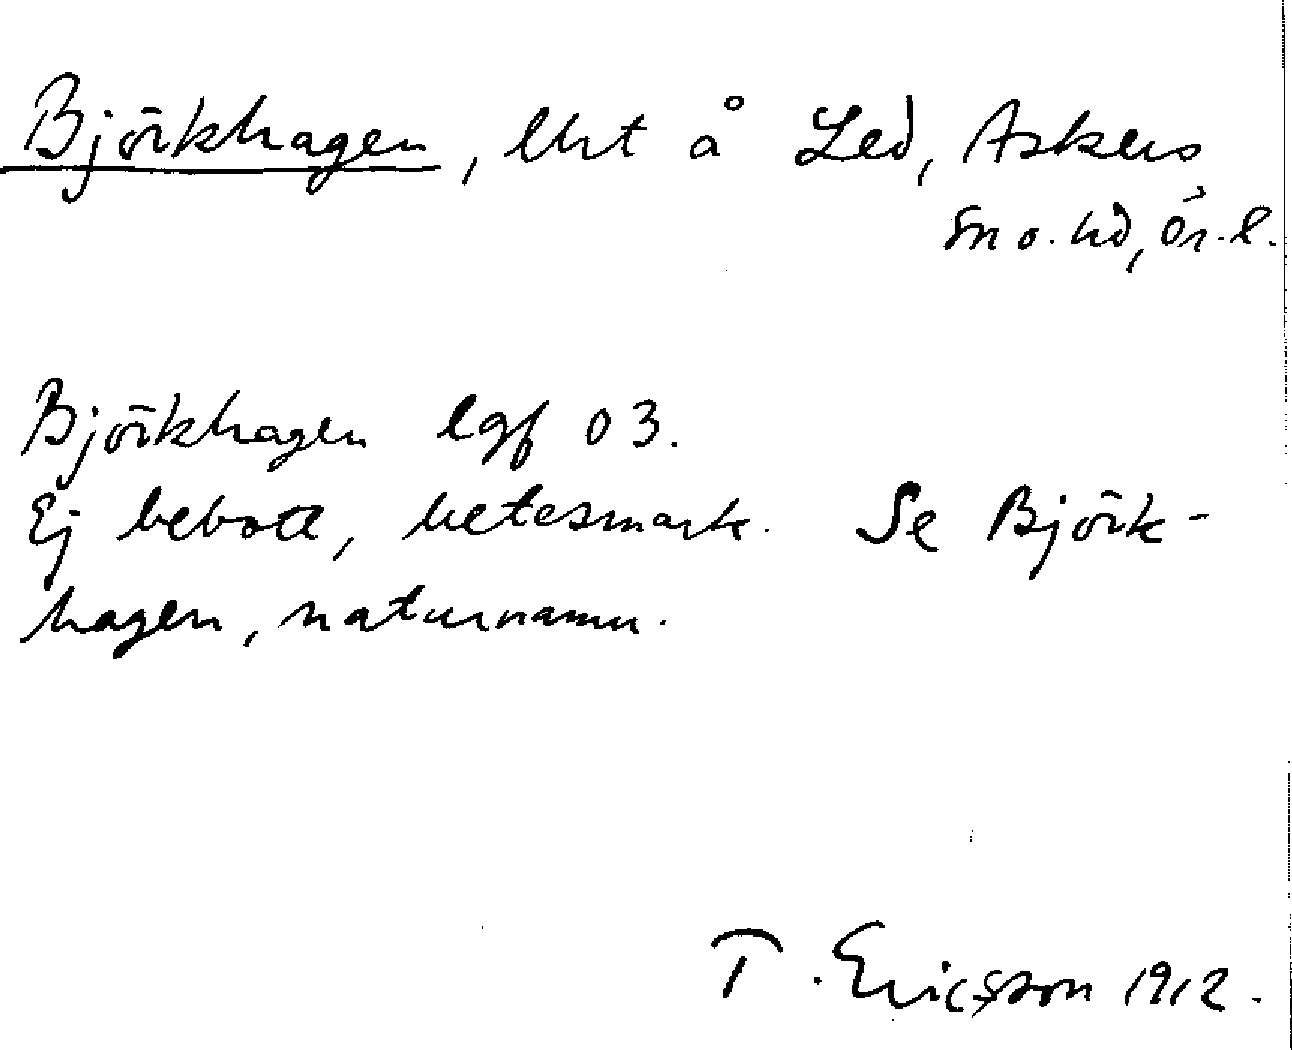 Björkhagen, lht å Led, Askers
sn o. hd, Ör. l.
Björkhagen lgf 03.
Ej bebott, betesmark. Se Björk-
hagen, naturnamn.
T. Ericsson 1912.